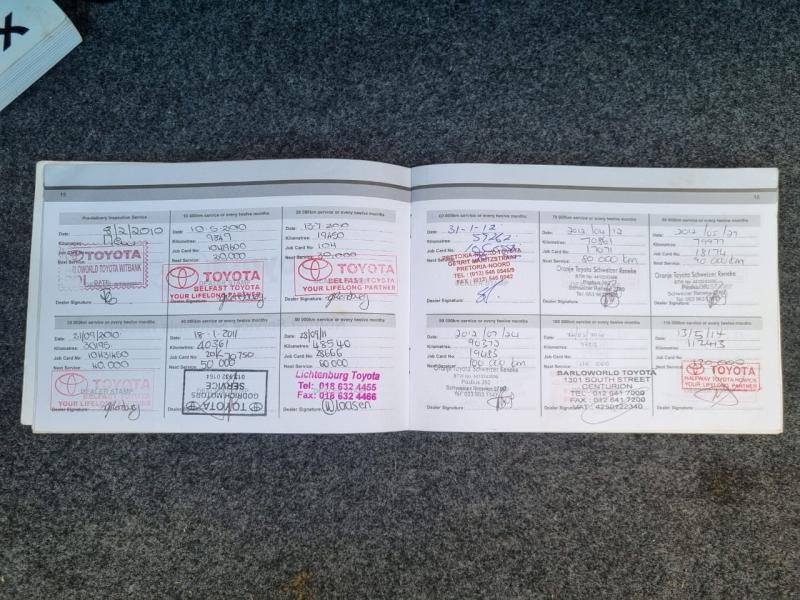 X
15
Pre-delivery Inspection Service
Date: 3/2/2010
Kilometres: New
TOYOTA
WORLD TOYOTA WITBANK
Dealer Signature:
10 000km service or every twelve months
Date: 10-5-2010
Kilometres: 9849
Job Card No: 1049600
Next Service: 20,000
TOYOTA
BELFAST TOYOTA
YOUR LIFELONG PARTNER
Dealer Signature:
20 000km service or every twelve months
Date:
Kilometres: 19450
Job Card No:
Next Service: 30,000
TOYOTA
BELFAST TOYOTA
YOUR LIFELONG PARTNER
Dealer Signature:
30 000km service or every twelve months
Date: 31/09/2010
Kilometres: 30195
Job Card No: 10431450
Next Service: 40,000
TOYOTA
DEALER STAMP
BELFAST
YOUR LIFELONG PARTNER
Dealer Signature:
40 000km service or every twelve months
Date: 18-1-2011
Kilometres: 40361
Job Card No:
Next Service: 50 000
TOYOTA
GODRICH MOTORS
SERVICE
Dealer Signature:
50 000km service or every twelve months
Date: 28/09/11
Kilometres: 48540
Job Card No: 28666
Next Service: 60 000
Lichtenburg Toyota
Tel: 018 632 4455
Fax: 018 632 4466
Dealer Signature:
16
60 000km service or every twelve months
Date: 31-1-12
Kilometres: 59262
Job Card No:
Next Service:
GERRIT MARITZSTRAAT
PRETORIA-NOORD
TEL: (012) 546 0545/9
FAX: (012) 546 0942
Dealer Signature:
70 000km service or every twelve months
Date: 2012/04/12
Kilometres: 70361
Job Card No: 17071
Next Service: 80 000 km
Oranje Toyota Schweizer Reneke
Posbus 392
Schweizer Reneke
Dealer Signature:
80 000km service or every twelve months
Date: 2012/05/29
Kilometres: 79977
Job Card No: 18174
Next Service: 90 000 km
Oranje Toyota Schweizer Reneke
Posbus 392
Schweizer Reneke
Dealer Signature:
90 000km service or every twelve months
Date: 2012/07/24
Kilometres: 90373
Job Card No: 19483
Next Service: 100 000 km
Oranje Toyota Schweizer Reneke
Posbus 392
Schweizer Reneke
Dealer Signature:
100 000km service or every twelve months
Date:
Kilometres:
Job Card No:
Next Service: 110 000
BARLOWORLD TOYOTA
1301 SOUTH STREET
CENTURION
TEL: 012 641 7000
FAX: 012 641 7200
VAT: 4250122340
Dealer Signature:
110 000km service or every twelve months
Date: 13/5/14
Kilometres: 112413
Job Card No:
Next Service: 130 000
TOYOTA
HALFWAY TOYOTA HOWICK
YOUR LIFELONG PARTNER
Dealer Signature: